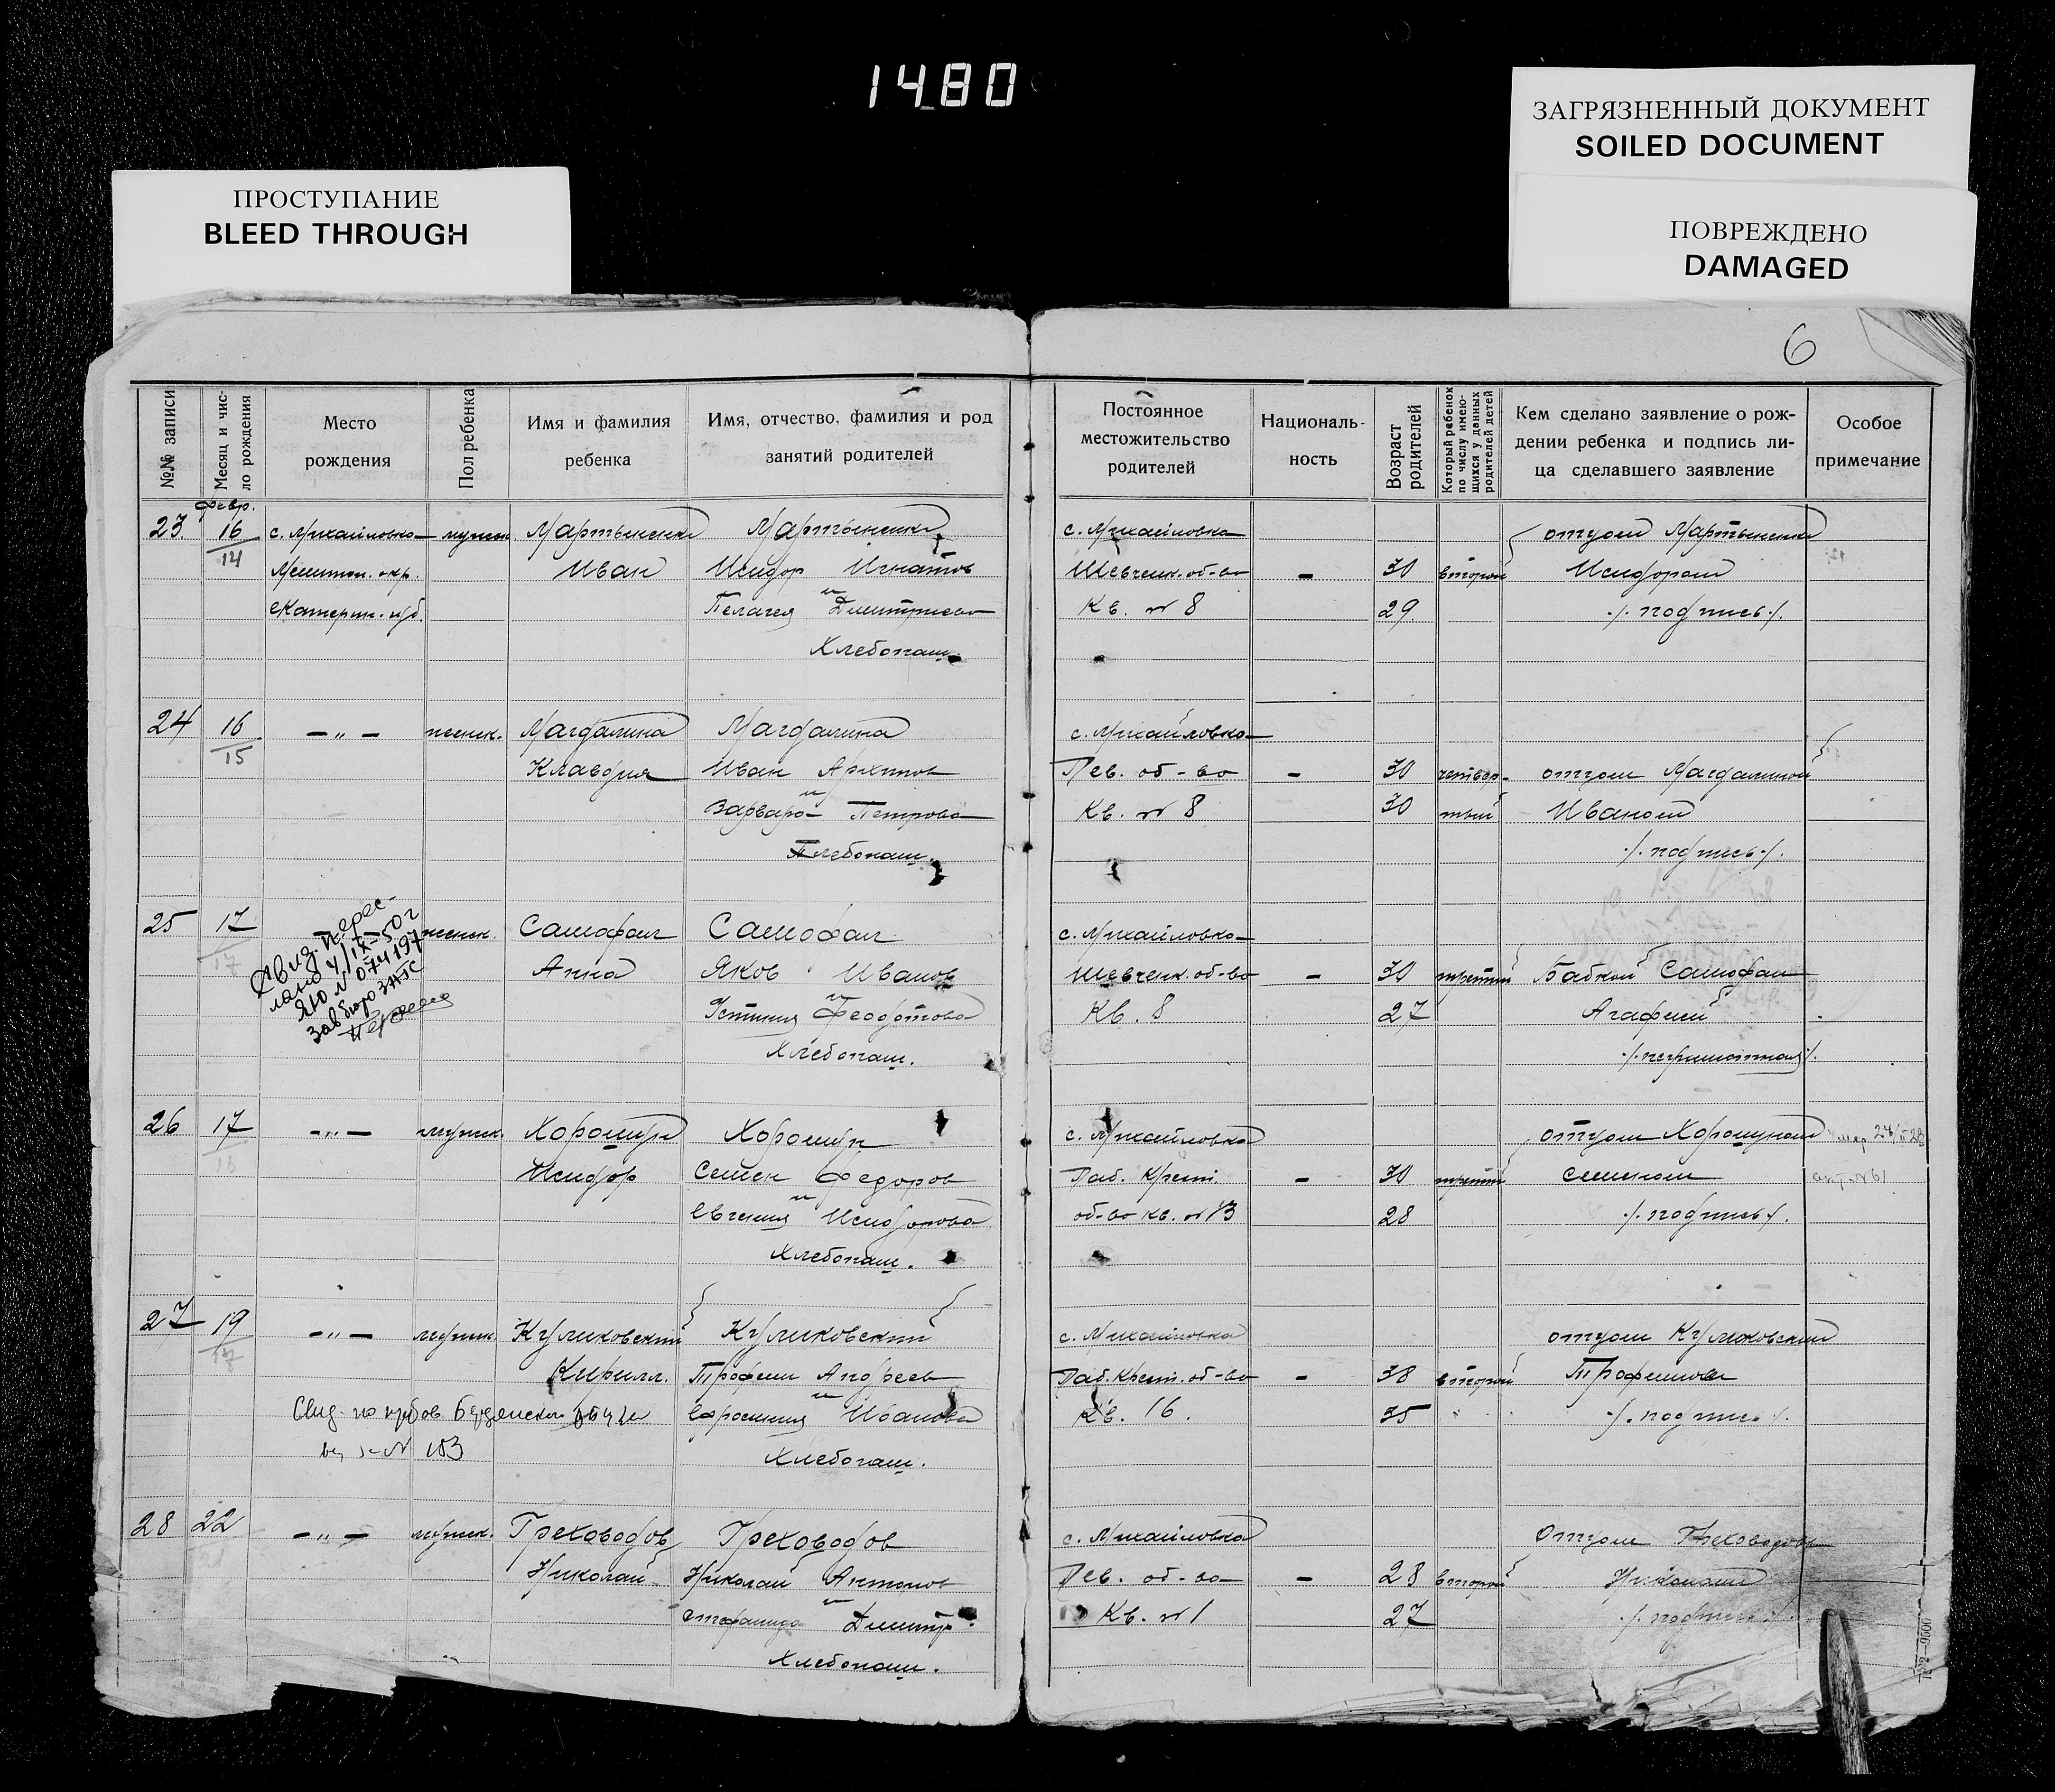 1480
ЗАГРЯЗНЕННЫЙ ДОКУМЕНТ
SOILED DOCUMENT
ПРОСТУПАНИЕ
BLEED THROUGH
ПОВРЕЖДЕНО
DAMAGED
6
№№ записи
Месяц и чис-
ло рождения
Место
рождения
Пол ребенка
Имя и фамилия
ребенка
Имя, отчество, фамилия и род
занятий родителей
Постоянное
местожительство
родителей
Националь-
ность
Возраст
родителей
Который ребенок
по числу имею-
щихся у данных
родителей детей
Кем сделано заявление о рож-
дении ребенка и подпись ли-
ца сделавшего заявление
Особое
примечание
февр.
23 16 с. Михайловка мужск. Мартыненко Мартыненко с. Михайловка отцом Мартыненко
14 Мелитоп. окр. Иван Исидор Игнатов Шевченк. об-во - 30 второй Исидором
Екатерин. губ. и
Пелагея Дмитриева Кв. № 8 29 /. подпись ./
Хлебопаш.
24 16 — „ — женск. Магдалина Магдалина с. Михайловка
15 Клавдия Иван Архипов Рев. об-во - 30 четвер- отцом Магдалиной
и
Варвара Петрова Кв. № 8 30 тый Иваном
Хлебопаш. /. подпись ./
25 17 женск. Самофал Самофал с. Михайловка
17 Анна Яков Иванов Шевченк. об-во - 30 третий Бабкой Самофал
и
Устиния Феодотова Кв. 8 27 Агафией
Хлебопаш. /. неграмотная ./
Свид. перес-
лано 4/IX-50 г
ЯЮ № 074197
Зав бюро ЗАГС
26 17 — „ — мужск. Хорошун Хорошун с. Михайловка отцом Хорошуном умер 24/II 28
Исидор Семен Федоров Раб. Крест. - 30 третий Семеном акт. № 61
и
Евгения Исидорова об-во кв. № 13 28 /. подпись ./
Хлебопаш.
27 19 — „ — мужск. Куликовский Куликовский с. Михайловка отцом Куликовским
17 Кирилл. Трофим Андреев Раб. Крест. об-во - 38 второй Трофимом
и
Ефросиния Иванова Кв. 16. 35 /. подпись ./
Хлебопаш.
Свид. по
№ 183
28 22 — „ — мужск. Греховодов Греховодов с. Михайловка Отцом Греховодовым
Николай Николай Антонов Рев. об-во - 28 второй Николаем
и
Степанида Дмитр. Кв. № 1 27 /. подпись ./
Хлебопаш.